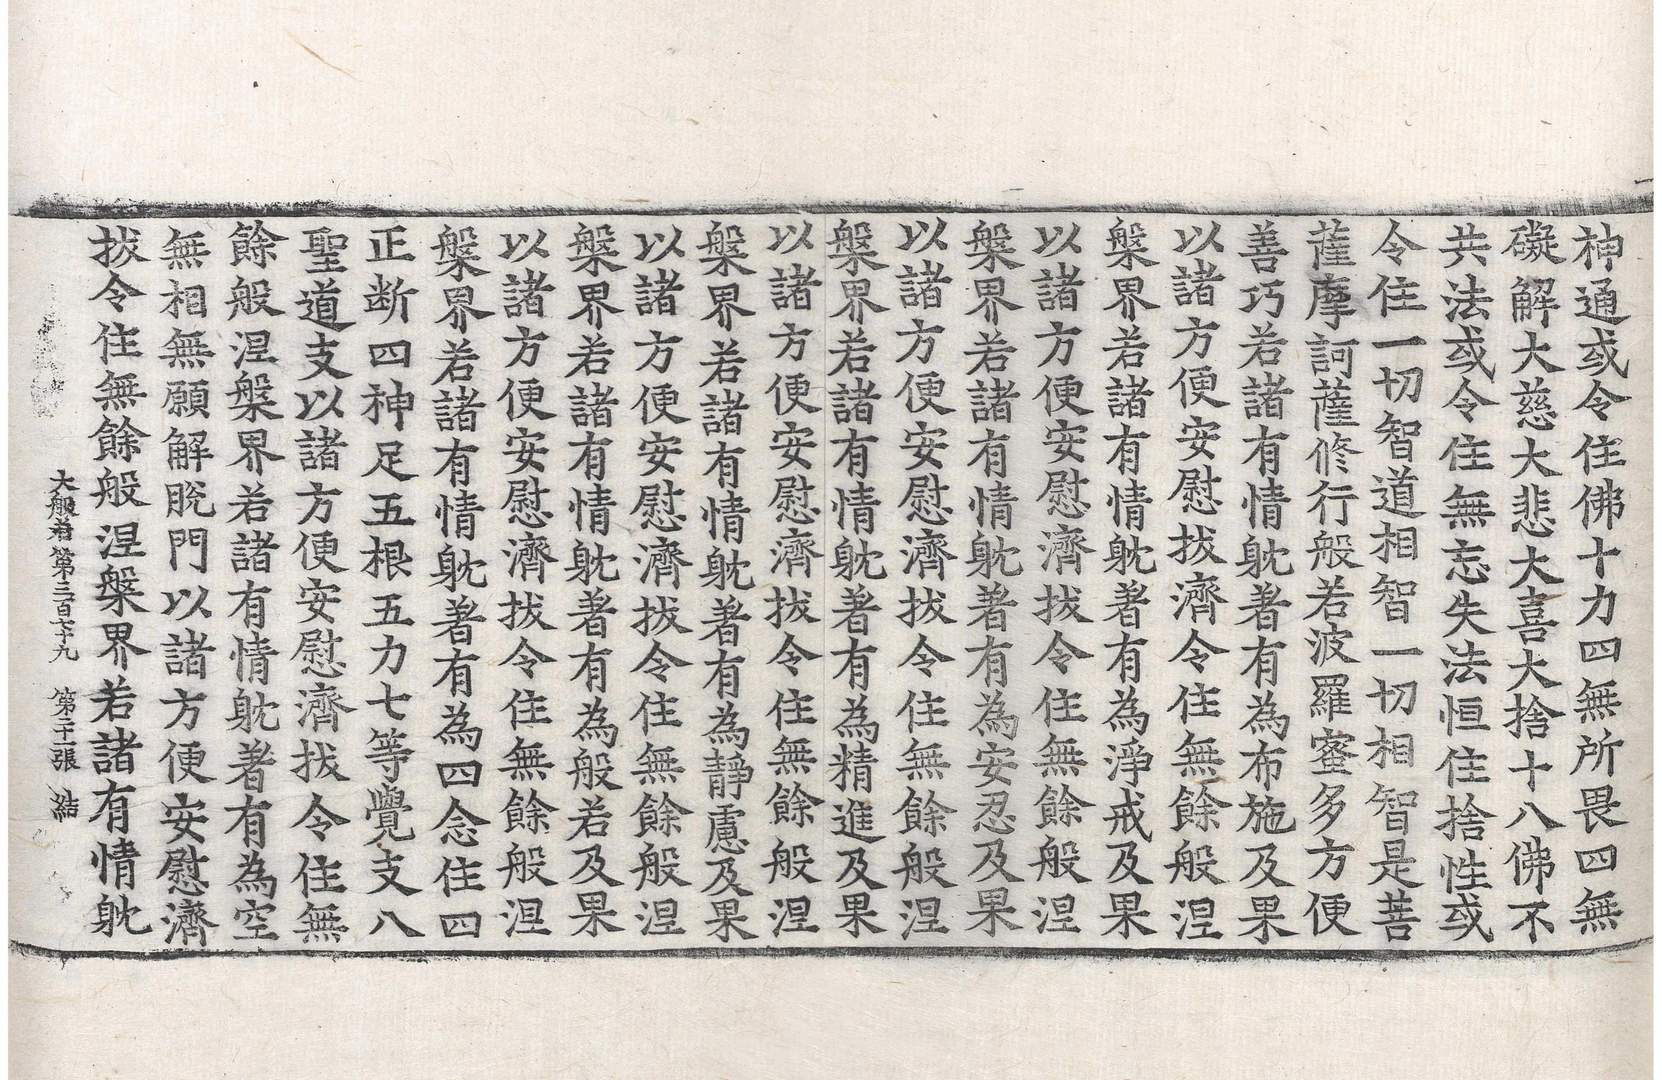 神通或令住佛十力四無所畏四無
礙解大慈大悲大喜大捨十八佛不
共法或令住無忘失法恒住捨性或
令住一切智道相智一切相智是菩
薩摩訶薩修行般若波羅蜜多方便
善巧若諸有情躭著有為布施及果
以諸方便安慰拔濟令住無餘般涅
槃界若諸有情躭著有為淨戒及果
以諸方便安慰濟拔令住無餘般涅
槃界若諸有情躭著有為安忍及果
以諸方便安慰濟拔令住無餘般涅
槃界若諸有情躭著有為精進及果
以諸方便安慰濟拔令住無餘般涅
槃界若諸有情躭著有為靜慮及果
以諸方便安慰濟拔令住無餘般涅
槃界若諸有情躭著有為般若及果
以諸方便安慰濟拔令住無餘般涅
槃界若諸有情躭著有為四念住四
正断四神足五根五力七等覺支八
聖道支以諸方便安慰濟拔令住無
餘般涅槃界若諸有情躭著有為空
無相無願解脫門以諸方便安慰濟
拔令住無餘般涅槃界若諸有情躭
大般若第三百七十九 第二十一張 結